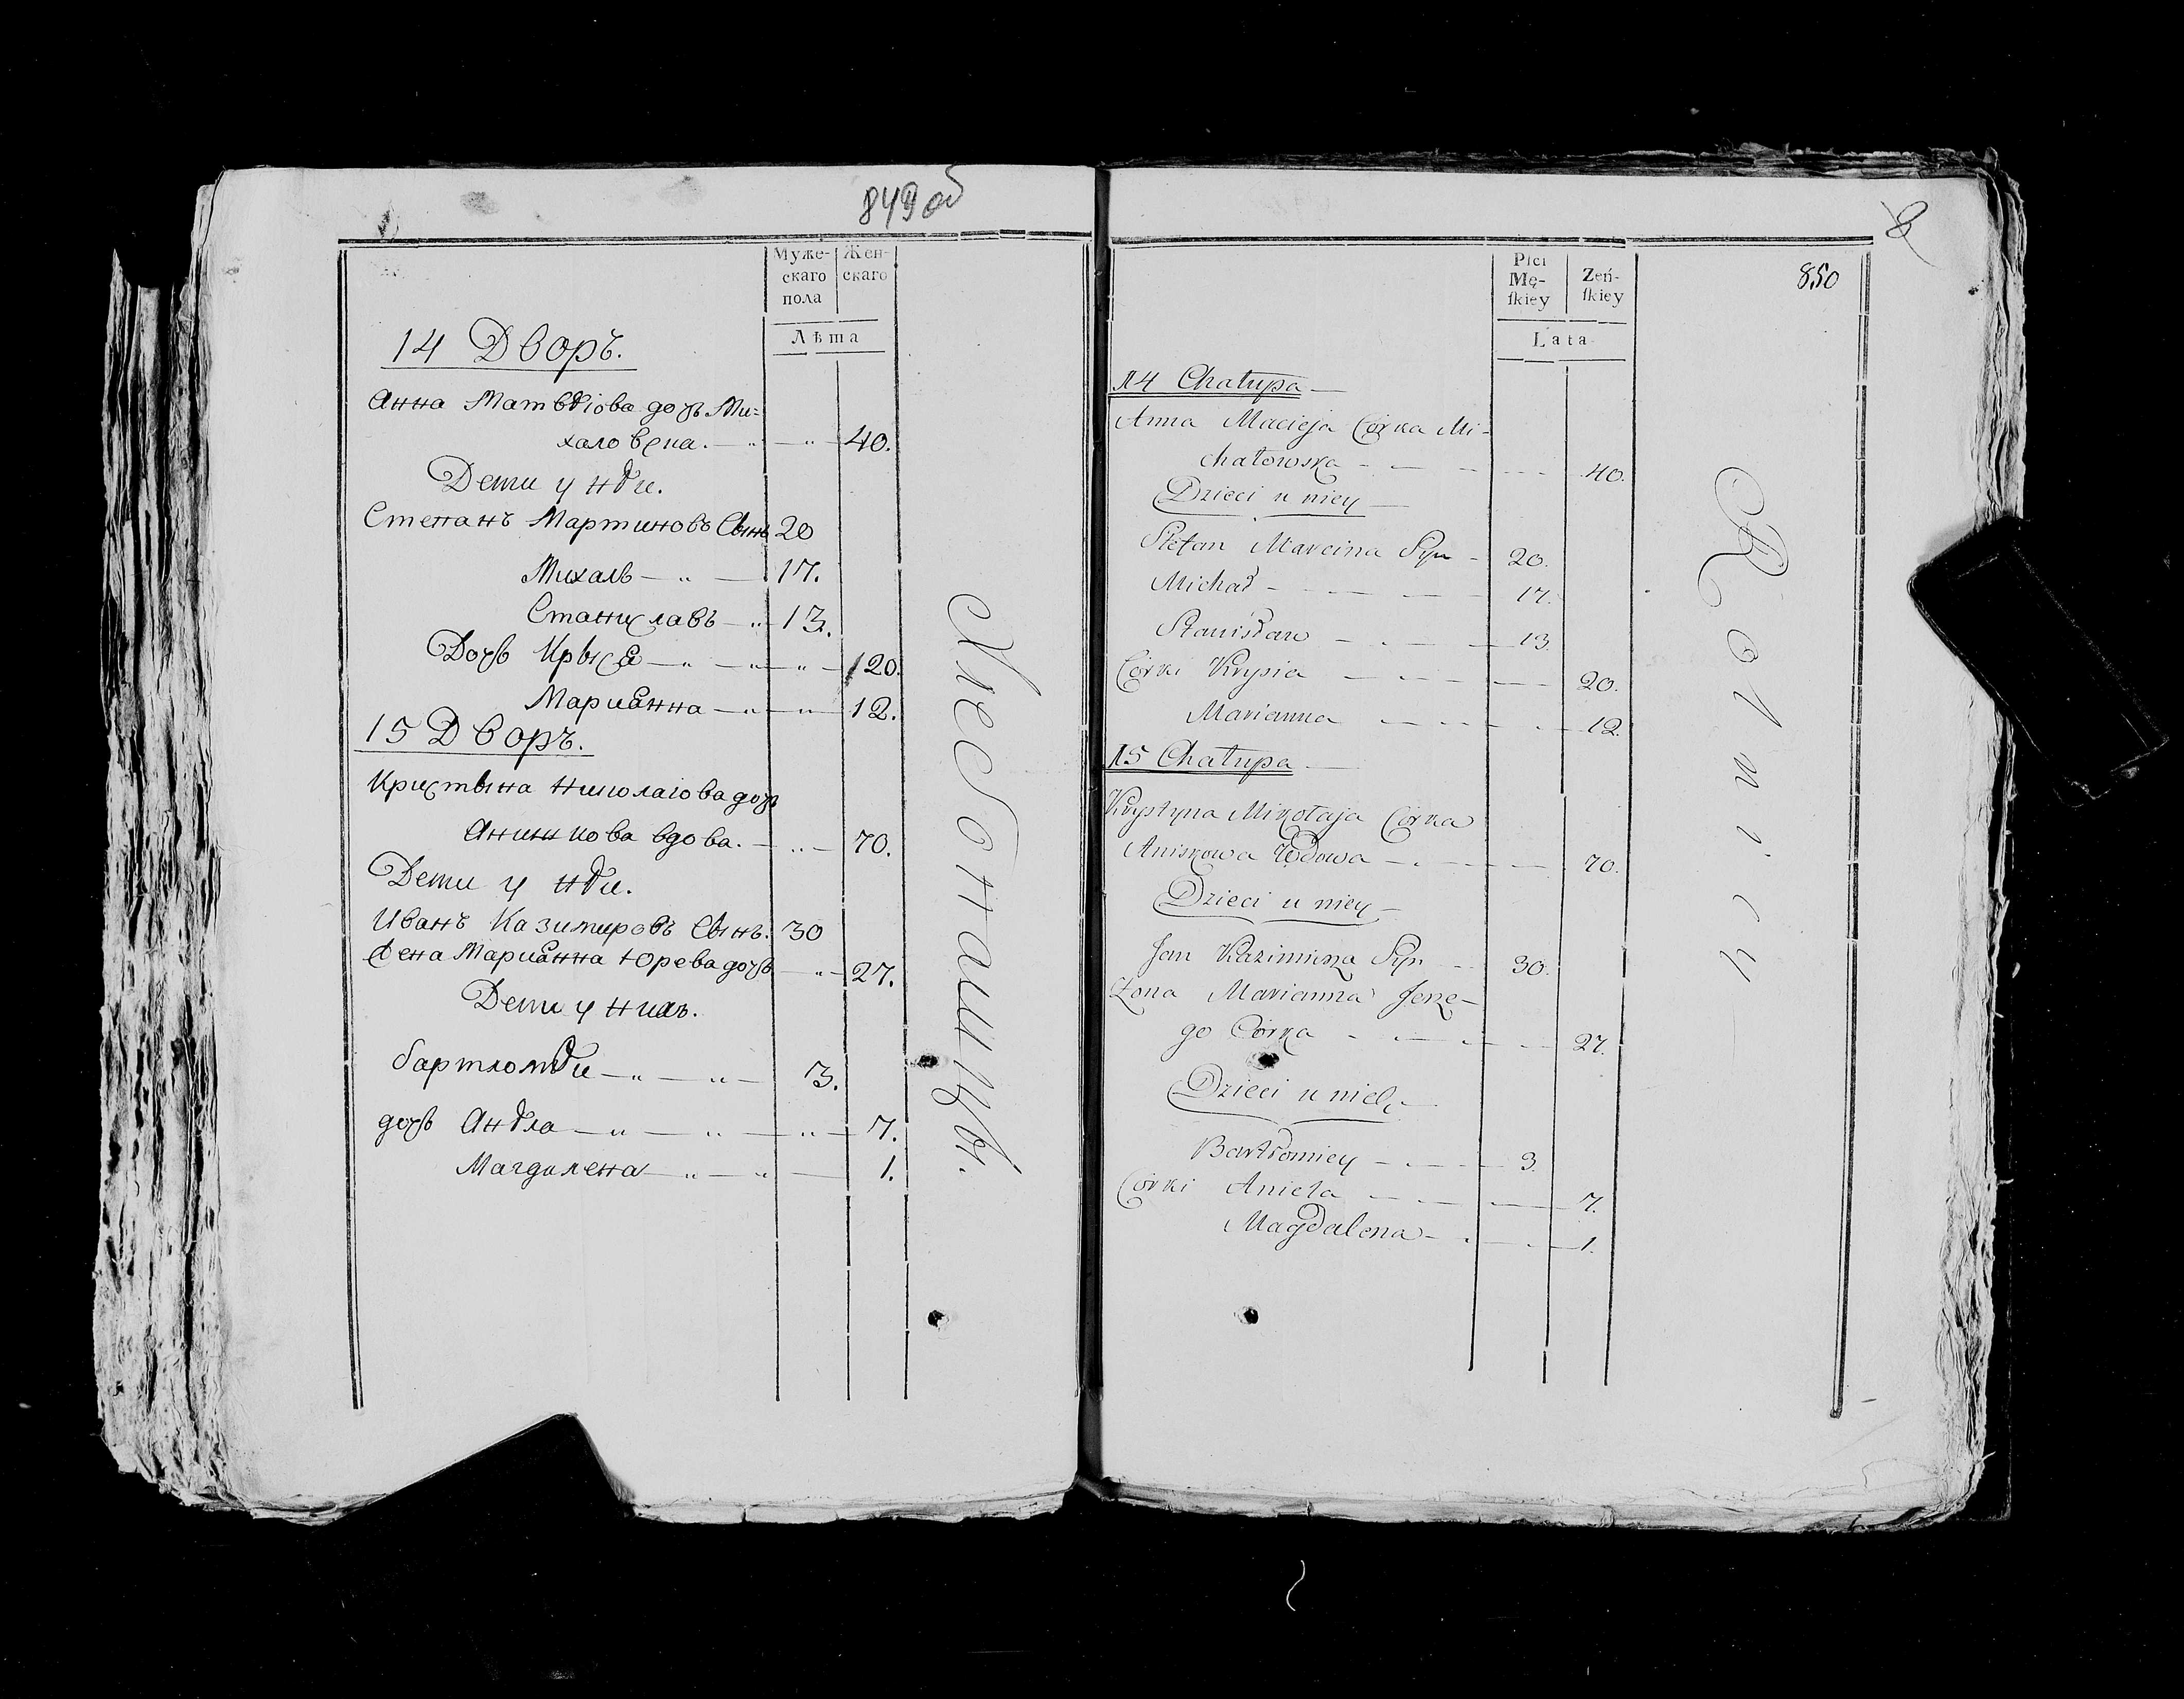 849 об
Муже-
скаго
пола
Жен-
скаго
Лѣта
14 Дворъ.
Анна Матвѣіова дочь Ми=
халовска. 40.
Дети у нѣи.
Степанъ Мартиновъ Сынъ 20
Михалъ 17.
Станиславъ 13.
Дочь Крыся 20.
Марианна 12.
15 Дворъ.
Кристына Николаіова дочь
Анишкова вдова. 70.
Дети у нѣи.
Иванъ Казимировъ Сынъ. 30
Жена Марианна Юрева дочь 27.
Дети у нихъ.
Бартломѣи 3.
дочь Анѣла 7.
Магдалена 1.
Хлебопашцы.
8
850
Płci
Mę-
ſkiey
Zeń-
ſkiey
Lata
14 Chałupa
Anna Macieja Córka Mi-
chałowska 40.
Dzieci u niey
Stefan Marcina Syn 20.
Michał 17.
Stanisław 13
Córki Krysia 20.
Marianna 12.
15 Chałupa
Krystyna Mikołaja Córka
Aniskowa Wdowa 70.
Dzieci u niey
Jan Kazimierza Syn 30.
Żona Marianna Jerze-
go Córka 27.
Dzieci u nich
Bartłomiey 3.
Córki Anieła 7.
Magdalena 1.
Rolnicy